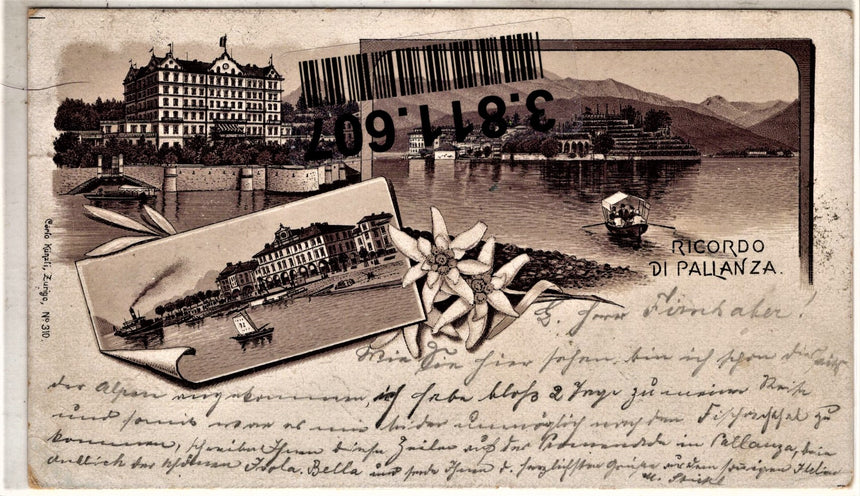 3.811.607
RICORDO
DI PALLANZA.
Carlo Künzli, Zurigo, No 310
G. Herr Firnhaber!
Wie Sie hier sehen, bin ich schon
der Alpen angekommen, ich habe bloß 2 Tage zu meiner Reise
und somit war es mir leider unmöglich nach den zu
kommen, schreibe Ihnen diese Zeilen auf der Promenade in Pallanza, beim
Anblick der schönen Isola Bella und sende Ihnen d. herzlichsten Grüße aus dem sonnigen Italien